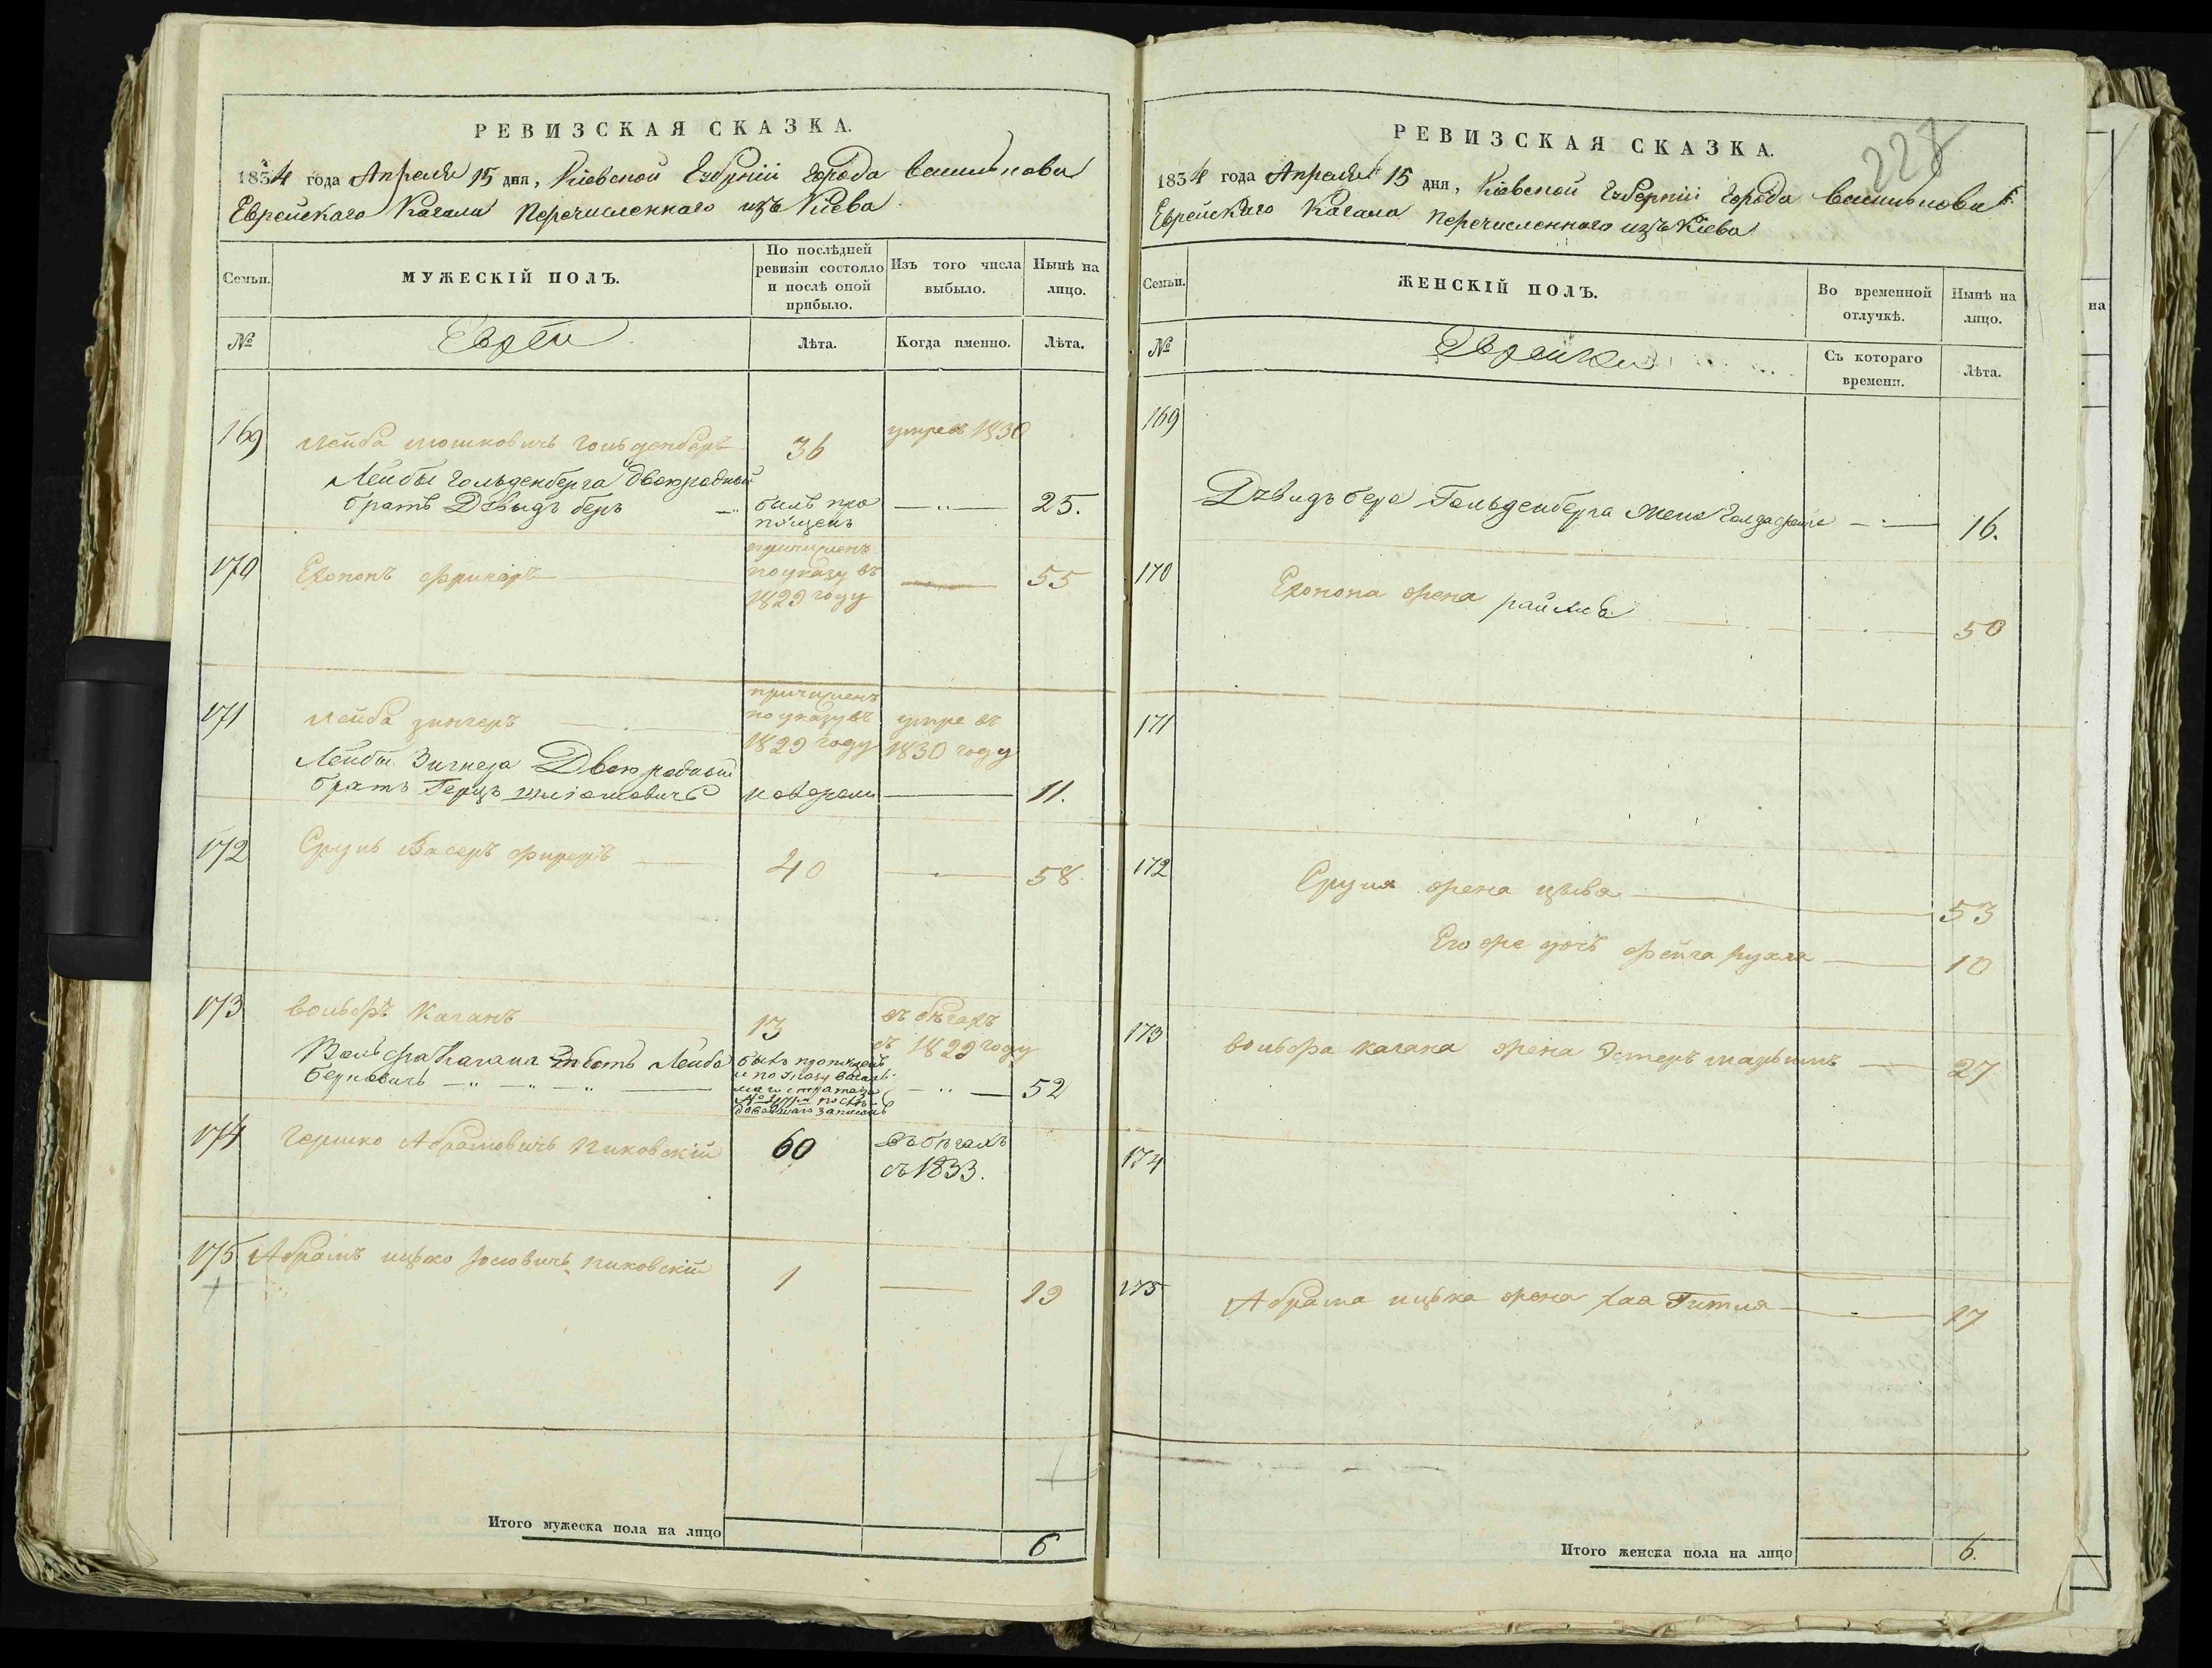 РЕВИЗСКАЯ СКАЗКА.
1834 года Апреля 15 дня, Киевской Губернiи города Василькова
Еврейскаго Кагала перечисленнаго изъ Кiева.
Семьи.
МУЖЕСКІЙ ПОЛЪ.
По послѣдней ревизіи состояло и послѣ оной прибыло.
Изъ того числа выбыло.
Нынѣ на лицо.
№
Евреи
Лѣта.
Когда именно.
Лѣта.
169 Лейба Мошковичъ Гольденберъ 36 умре въ 1830
Лейбы Гольденберга двоюродный
братъ Давыдъ беръ былъ пропущенъ 25.
170 причисленъ по указу въ 1829 году 55
171 Лейба Зингеръ причисленъ по указу въ 1829 году умре въ 1830 году
Лейбы Зингера Двоюродный
братъ Герцъ 11.
172 Сруль 40 58
173 вольфъ Каганъ 13 въ бѣгахъ съ 1829 году
Вольфа Кагана зять Лейба былъ пропущенъ
Берковичъ 52
174 Гершко Абрамовичъ Пиковскій 60 въ бѣгахъ
съ 1833.
175 Абрамъ ицко Iосіовичъ Пиковскій 1 19
Итого мужеска пола на лицо 6
228
РЕВИЗСКАЯ СКАЗКА.
1834 года Апреля 15 дня, Кiевской Губернiи города Василькова
Еврейскаго Кагала перечисленнаго изъ Кiева
Семьи.
ЖЕНСКІЙ ПОЛЪ.
Во временной отлучкѣ.
Нынѣ на лицо.
№
Еврейки
Съ котораго времени.
Лѣта.
169
Давидъ бера Гольденберга жена 16.
170 жена 50
171
172 Сруля жена цыва 53
Его же дочь фейга рухля 10
173 вольфа кагана жена Эстеръ 27
174
175 Абрама ицка жена хая Гитля 17
Итого женска пола на лицо 6.